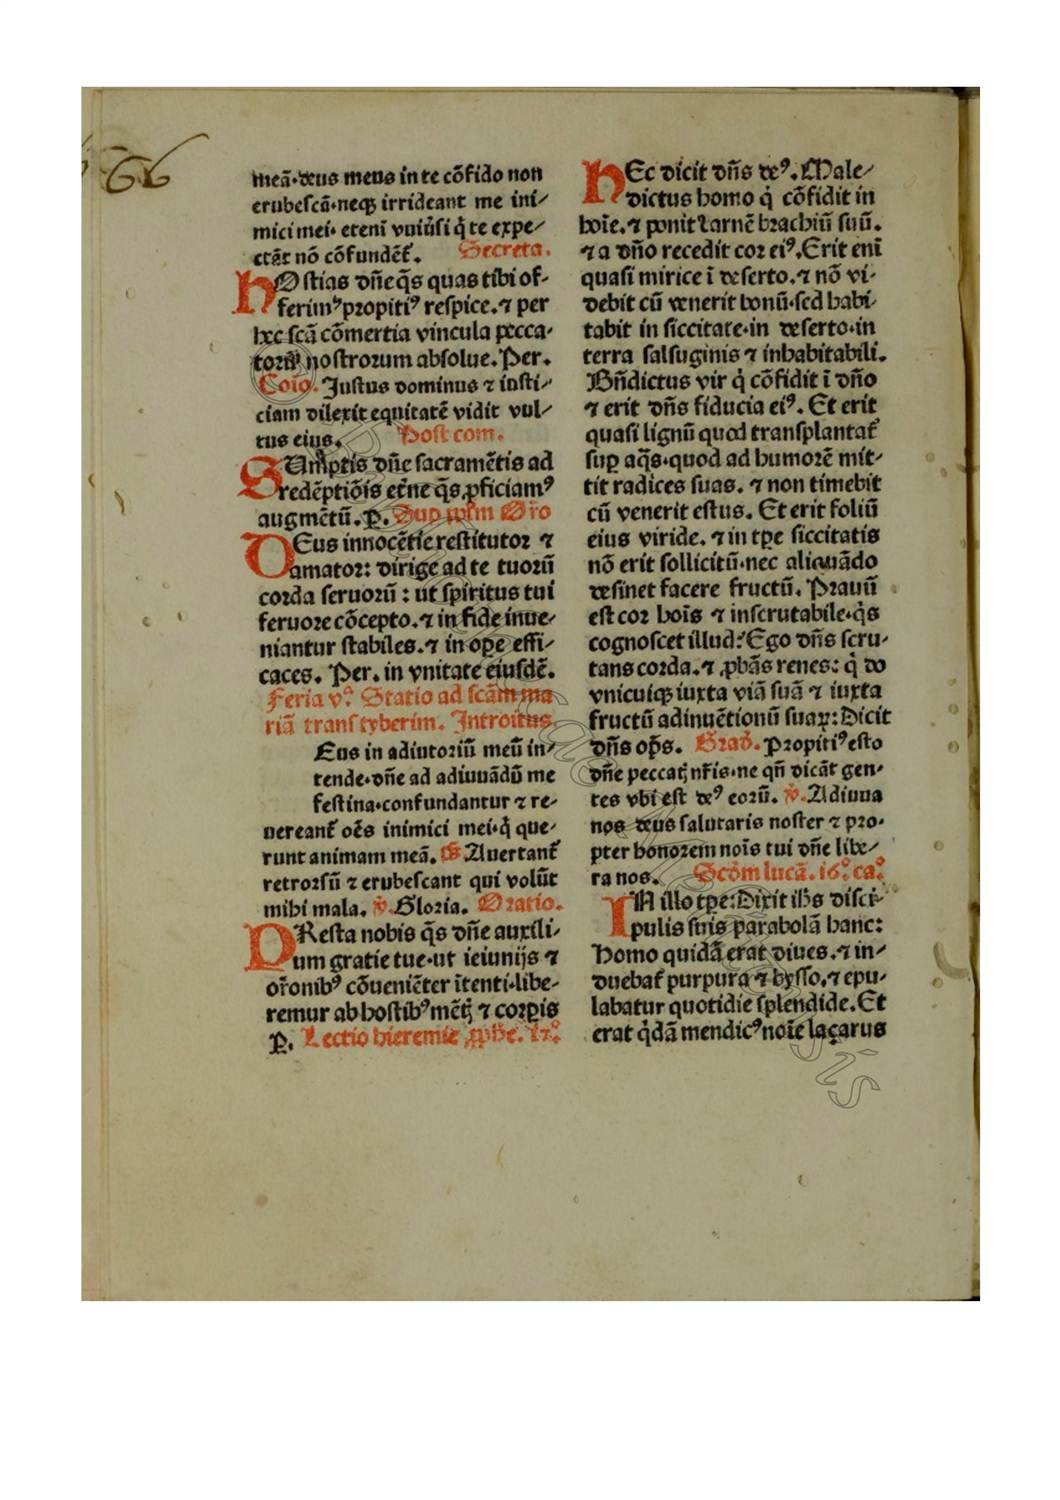 66
meā·deus meus in te cōfido non
erubeſcā·neqꝫ irrideant me ini⸗
mici mei· eteni vniūſi q̇ te expe⸗
ctāt nō cōfundēt᷑. Secreta.
HOſtias dn̄e q̄s quas tibi of⸗
ferimꝰ propitiꝰ reſpice.⁊ per
hec ſcā cōmertia vincula pecca⸗
torꝝ noſtrorum abſolue. Per.
Coīo. Juſtus dominus ⁊ iuſti⸗
ciam dilexit equitatē vidit vul⸗
tus eius. Poſt com.
SUmptis dn̄e ſacramētis ad
redēptiōis et̄ne q̄s ꝓficiamꝰ
augmētū. P. Sup pp̄lm Oro
DEus innocētie reſtitutor ⁊
amator: dirige ad te tuorū
corda ſeruorū: ut ſpiritus tui
feruore cōcepto.⁊ in fide inue⸗
niantur ſtabiles.⁊ in oꝑe effi⸗
caces. Per. in vnitate eiuſdē.
Feria v.ª Statio ad ſcām ma
riā tranſtyberim. Introitus.
Eus in adiutoriū meū in⸗
tende·dn̄e ad adiuuādū me
feſtina·confundantur ⁊ re⸗
uereant᷑ oēs inimici mei·q̇ que⸗
runt animam meā. p̄s Auertant᷑
retrorſū ⁊ erubeſcant qui volūt
mihi mala. ℣. Gloria. Oratio.
PReſta nobis q̄s dn̄e auxili⸗
um gratie tue·ut ieiunijs ⁊
or̄onibꝰ cōueniēter ītenti·libe⸗
remur ab hoſtibꝰ mētꝭ ⁊ corꝑis
P. Lectio hieremie ꝓphe. 17.º
HEc dicit dn̄s deꝰ. Male⸗
dictus homo q̇ cōfidit in
hoīe.⁊ ponit carnē brachiū ſuū.
⁊ a dn̄o recedit cor eiꝰ. Erit enī
quaſi mirice ī deſerto.⁊ nō vi⸗
debit cū venerit bonū·ſed habi⸗
tabit in ſiccitate·in deſerto·in
terra ſalſuginis ⁊ inhabitabili.
Bn̄dictus vir q̇ cōfidit ī dn̄o
⁊ erit dn̄s fiducia eiꝰ. Et erit
quaſi lignū quod tranſplantat᷑
ſuꝑ aq̄s·quod ad humorē mit⸗
tit radices ſuas. ⁊ non timebit
cū venerit eſtus. Et erit foliū
eius viride. ⁊ in tꝑe ſiccitatis
nō erit ſollicitū·nec aliquādo
deſinet facere fructū. Prauū
eſt cor hoīs ⁊ inſcrutabile·q̄s
cognoſcet illud? Ego dn̄s ſcru⸗
tans corda.⁊ ꝓbās renes: q̇ do
vnicuiqꝫ iuxta viā ſuā ⁊ iuxta
fructū adinuētionū ſuaꝝ: Dicit
dn̄s op̄s. Grad̄. Propitiꝰ eſto
dn̄e peccatꝭ nr̄is·ne qn̄ dicāt gen⸗
tes vbi eſt deꝰ eorū. ℣. Adiuua
nos deus ſalutaris noſter ⁊ pro⸗
pter honorem noīs tui dn̄e libe⸗
ra nos. Scd̄m lucā. 16.º ca.º
IN illo tꝑe: Dixit ih̄s diſci⸗
pulis ſuis parabolā hanc:
Homo quidā erat diues.⁊ in⸗
duebat᷑ purpura ⁊ byſſo.⁊ epu⸗
labatur quotidie ſplendide. Et
erat q̇dā mendicꝰ noīe laçarus